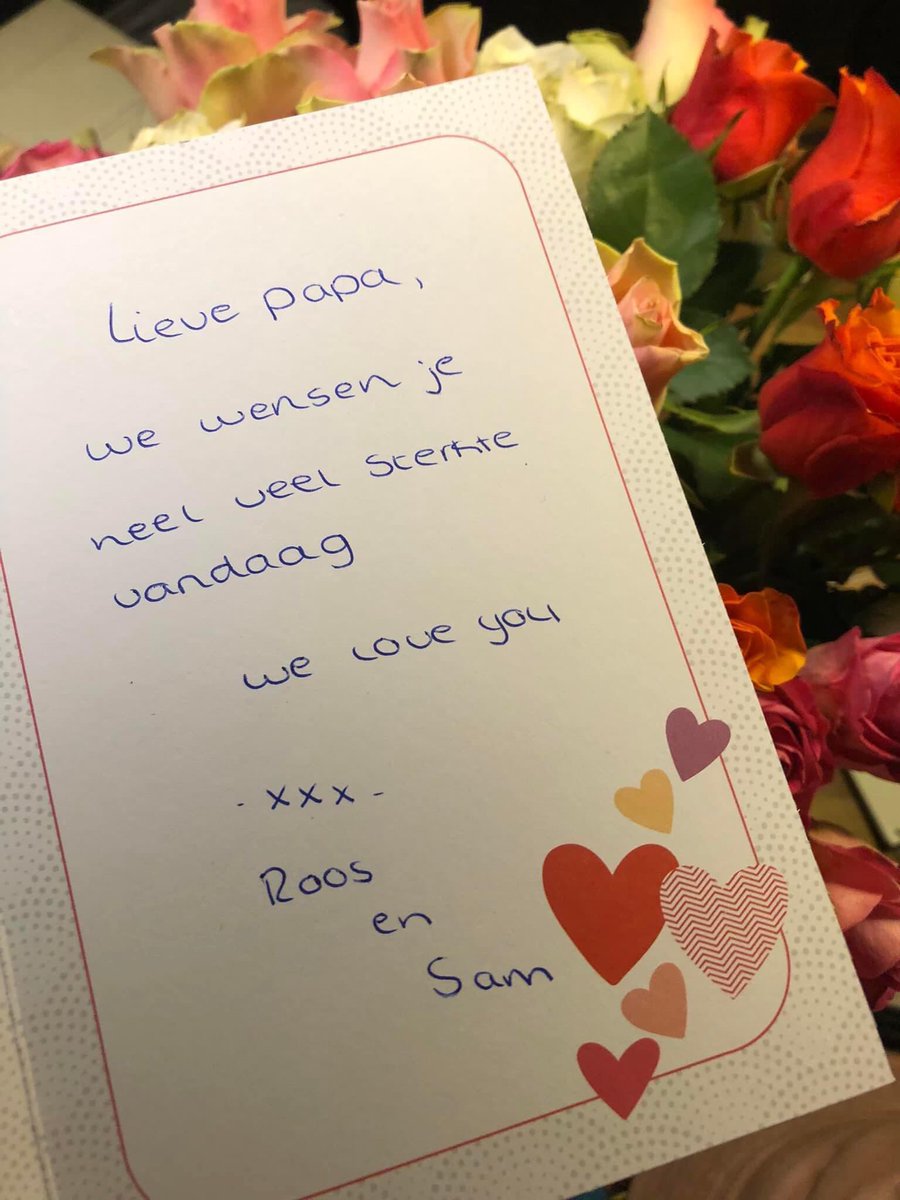 Lieve papa,
we wensen je
heel veel sterkte
vandaag
we love you
- xxx -
Roos
en
Sam